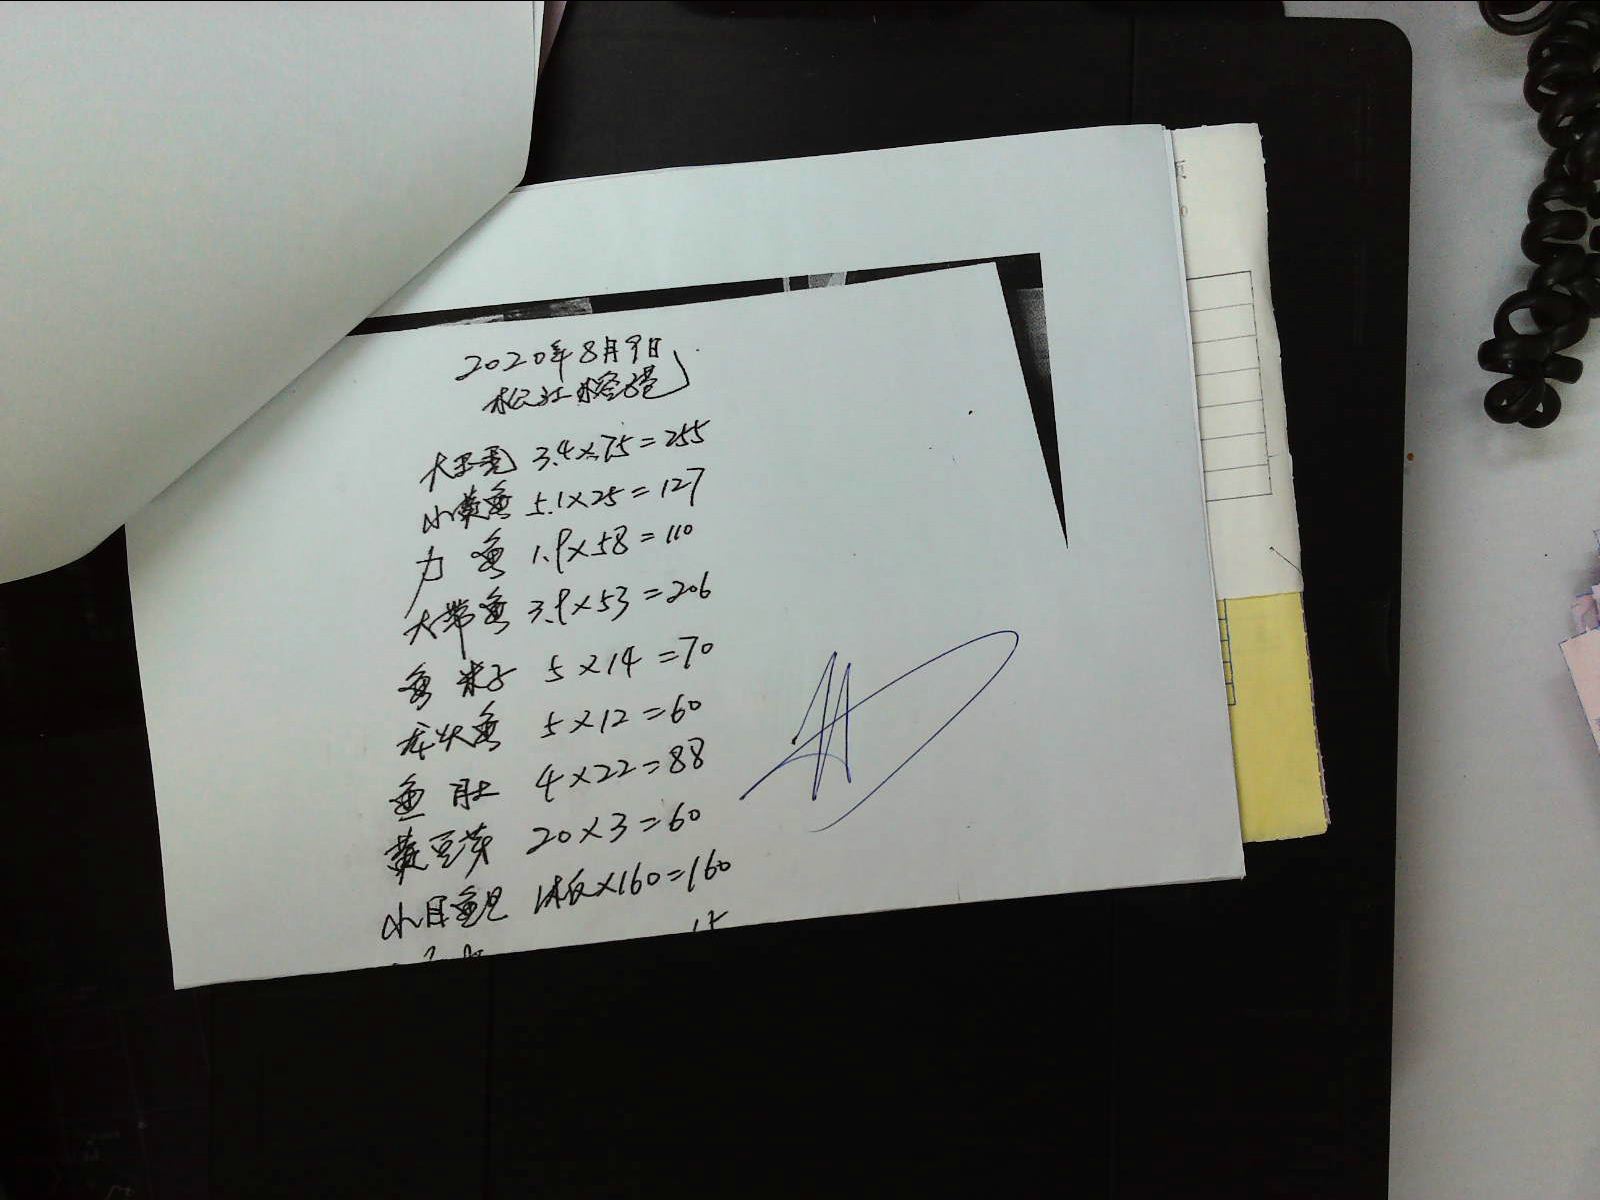 2020年8月9日
松江
大玉秃 3.4×75=255
小黄鱼 5.1×25=127
力鱼 1.9×58=110
大带鱼 3.9×53=206
鱼米子 5×14=70
龙头鱼 5×12=60
鱼肚 4×22=88
黄豆芽 20×3=60
小目鱼 1板×160=160